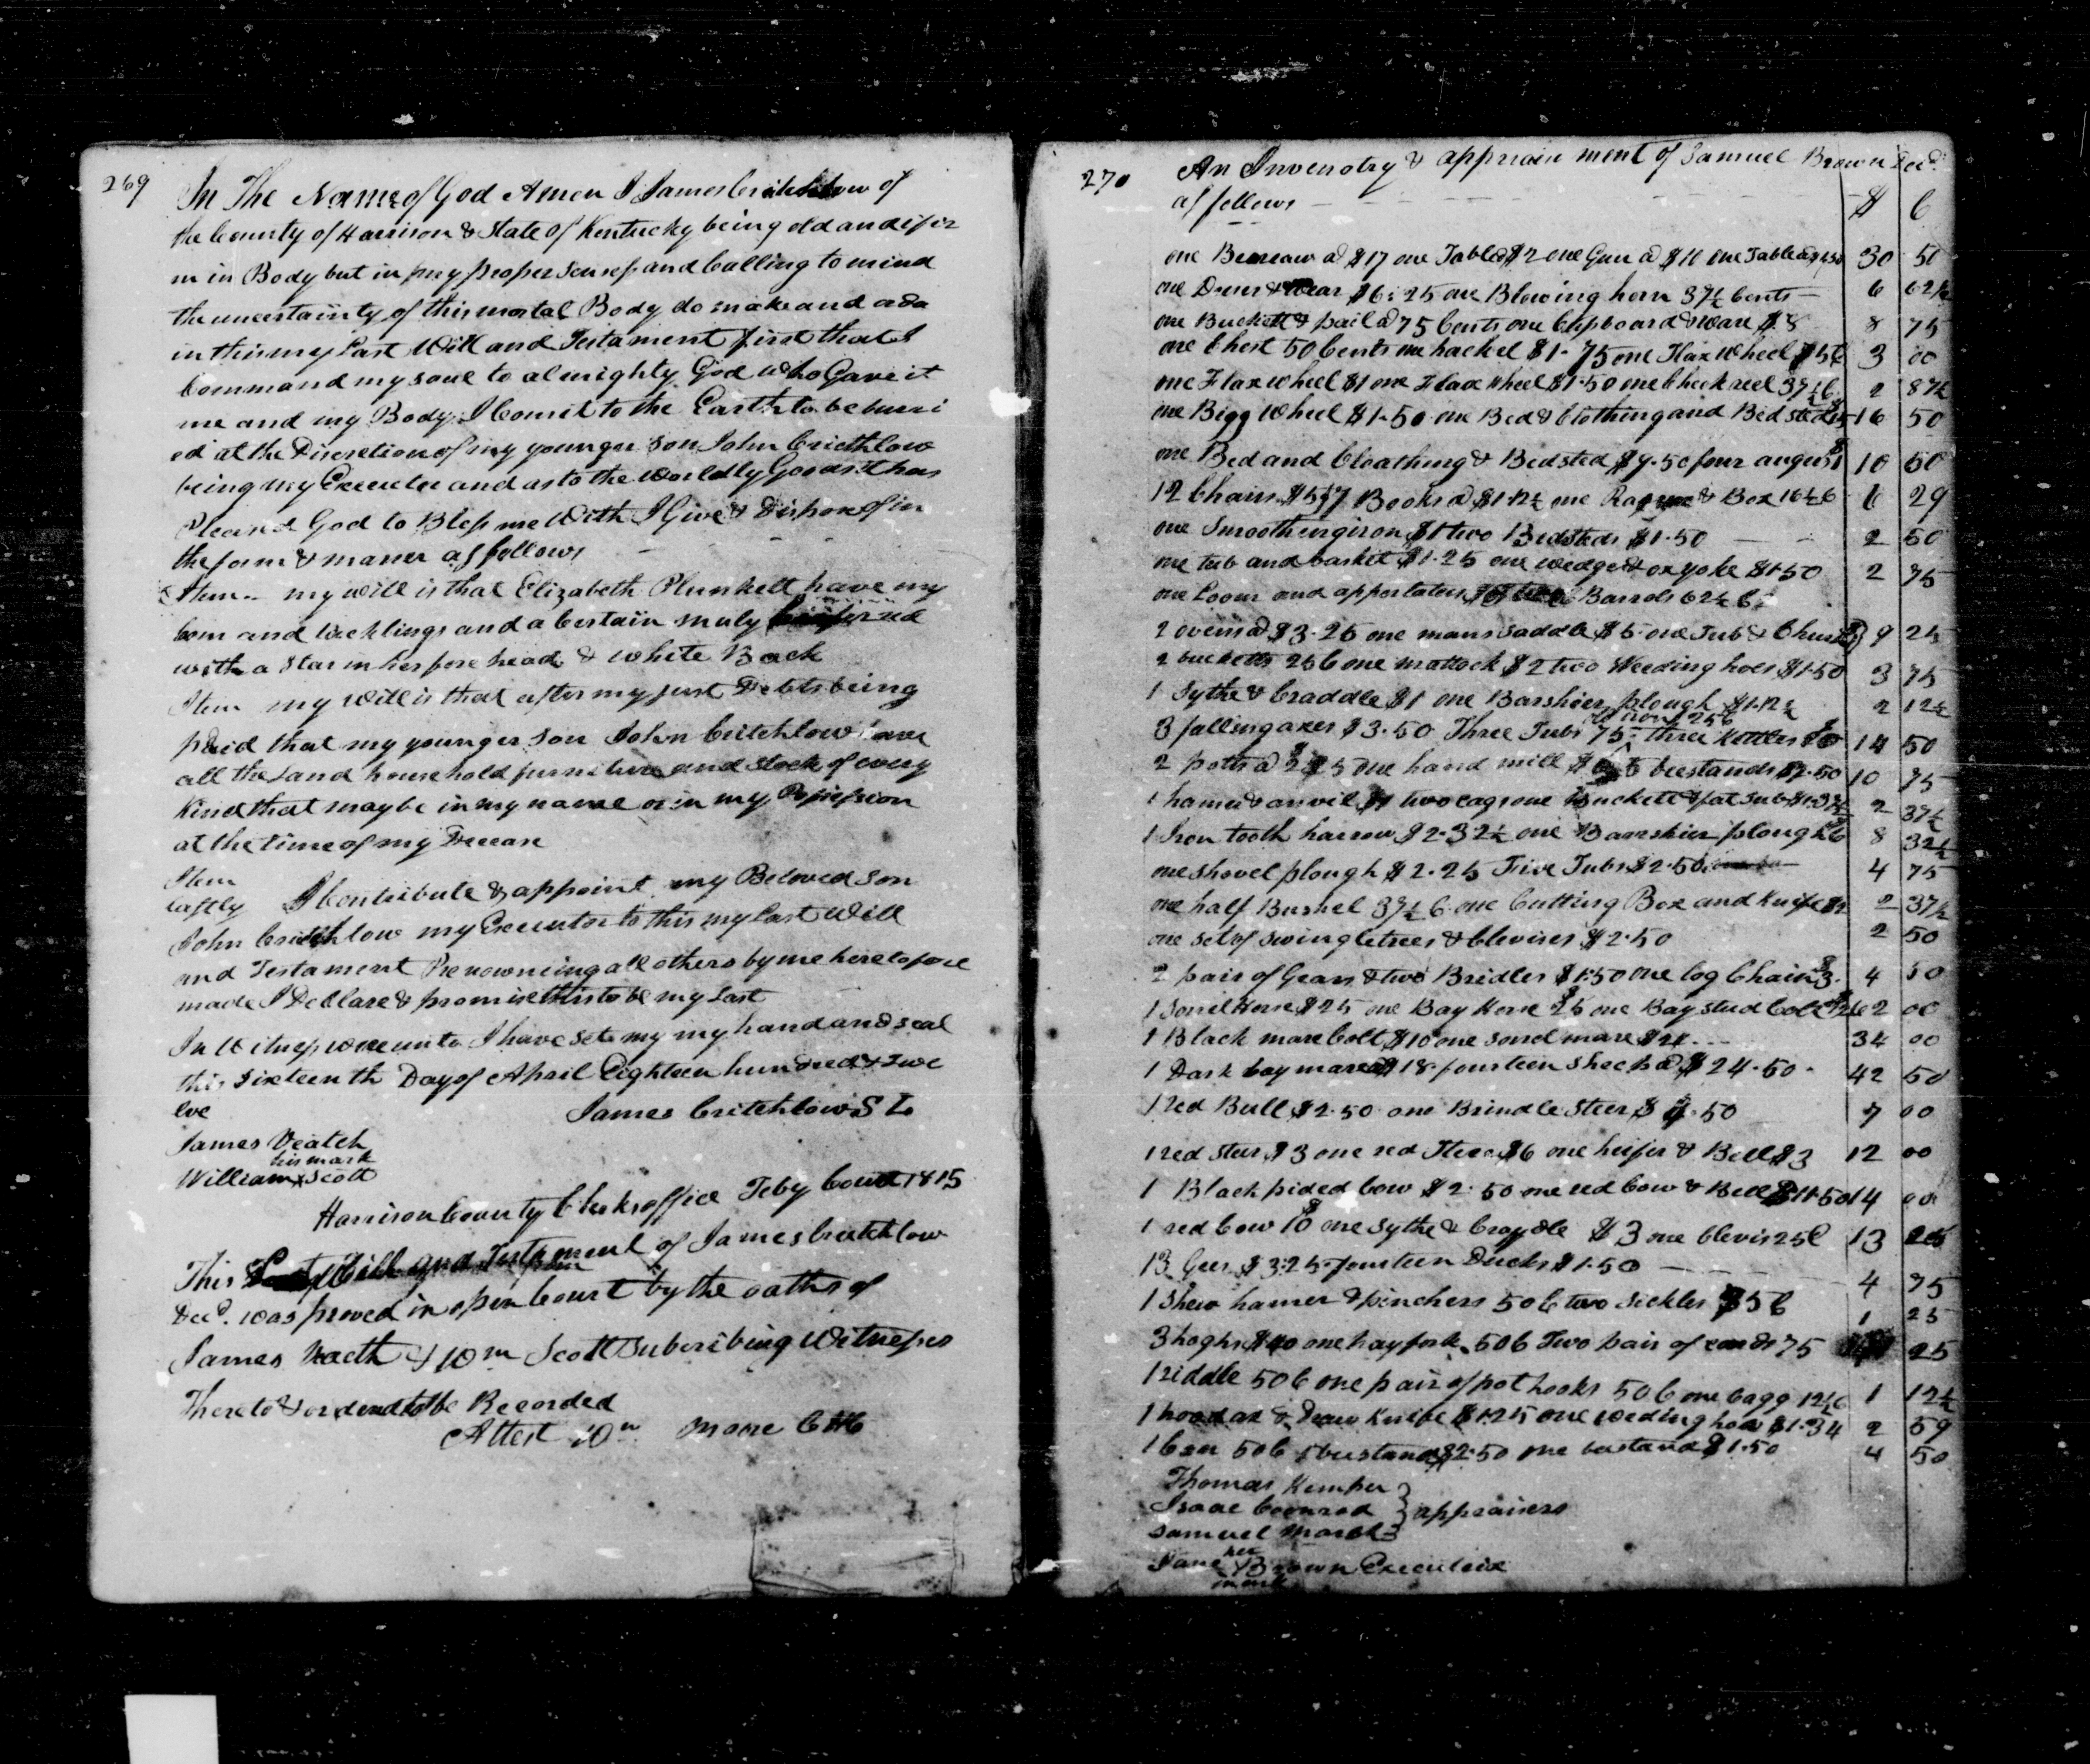 269
In The Name of God Amen I James Critchlow of
the County of Harrison & State of Kentucky being old and ifir
m in Body but in my proper Senses and Calling to mind
the uncertainty of this mortal Body do make and ada
in this my Last Will and Testament first that I
Command my soul to almighty God who Gave it
me and my Body I Comit to the Earth to be burri
ed at the Discretion of my younger son John Critchlow
being my Executer and as to the Worldly Goods it has
Pleased God to Bless me With I Give & Dispose of in
the form & maner as follows
Item - my will is that Elizabeth Plunkett have my
loom and tacklings and a Certain muly red
with a Star in her fore head & white Back
Item my will is that after my just Debts being
paid that my younger Son John Critchlow have
all the Land household furniture and Stock of every
Kind that may be in my name or in my Possession
at the time of my Decease
Item
lastly I Contribute & appoint my Beloved Son
John Critchlow my Executor to this my Last Will
and Testament Renowncing all others by me heretofore
made I Declare & promise this to be my Last
In Witness whereunto I have Set my my hand and seal
this Sixteenth Day of April Eighteen hundred & Twe
lve James Critchlow S L
James Veatch
his mark
William x Scott
Harrison County Clerks office Feby Court 1815
This Last Will and Testament of James Critchlow
Decd. was proved in open Court by the oaths of
James Veatch & Wm Scott Subscribing Witnesses
Thereto & ordered to be Recorded
Attest Wm Moore CHC
270 An Invenotry & appraisment of Samuel Brown Decd.
as follows $ C
one Bureaw @ $17 one Table @ $2 one Gun @ $10 one Table @ $1.50 30 50
one Dreser & Wear $6.25 one Blowing horn 37½ Cents 6 62½
one Buckett & pail @ 75 Cents one Cupboard & Ware $8 8 75
one Chest 50 Cents one hackel $1.75 one Flax Wheel 75 C 3 00
one Flax wheel $1 one Flax Wheel $1.50 one Check reel 37½ C 2 87½
one Bigg Wheel $1.50 one Bed & Clothing and Bedsted $15 16 50
one Bed and Cloathing & Bedsted $9.50 four augers $1 10 50
12 Chairs $5 Books @ $1.12½ one & Box 16½ C 6 29
one Smoothing iron $1 two Bedsteds $1.50 2 50
one tub and basket $1.25 one wedge & ox yoke $1.50 2 75
one Loom and appertatens Barrols 62½ C
2 ovens @ $3.25 one mans saddle $5 one Tub & Churn 9 25
2 bucketts 25 C one mattock $2 two Weeding hoes $1.50 3 75
1 Sythe & Craddle $1 one Barshier plough $1.12½ 2 12½
old iron 25 C
3 falling axes $3.50 Three Tubs 75 - three Kettles $10 14 50
2 potts @ one hand mill beestands $2.50 10 75
1 hamer & anvil $1 two cags one Buckett & fat tub $1.37½ 2 37½
1 Iron tooth harrow $2.32½ one Barrshier plough $6 8 32½
one shovel plough $2.25 Five Tubs $2.50 4 75
one half Bushel 37½ C one Cutting Box and Knife $2 2 37½
one set of swingletrees & Clevises $2.50 2 50
2 pair of Gears & two Bridles $1.50 one log Chain $3 4 50
1 Sorrel Horse $25 one Bay Horse $25 one Bay stud Colt $12 62 00
1 Black mare Colt $10 one sorrel mare $24 34 00
1 Dark bay mare @ $18 fourteen Sheep @ $24.50 42 50
1 red Bull $2.50 one Brindle Steer $4.50 7 00
1 red steer $3 one red Steer $6 one heifer & Bell $3 12 00
1 Black pided Cow $2.50 one red Cow & Bell $11.50 14 00
1 red Cow $10 one Sythe & Craydle $3 one Clevis 25 C 13 25
13 Gees $3.25 fourteen Ducks $1.50 4 75
1 Shew hamer & pinchers 50 C two Sickles 75 C 1 25
3 hoghs $40 one hay fork 50 C Two pair of cards 75 25
1 riddle 50 C one pair of pot hooks 50 C one bagg 12½ C 1 12½
1 & Draw Knife $1.25 one weding hoe $1.34 2 59
1 Can 50 C beestand $2.50 one bestand $1.50 4 50
Thomas Kemper
Isaac Coonrod } appraisers
Samuel March
her
Jane x Brown Executrix
mark